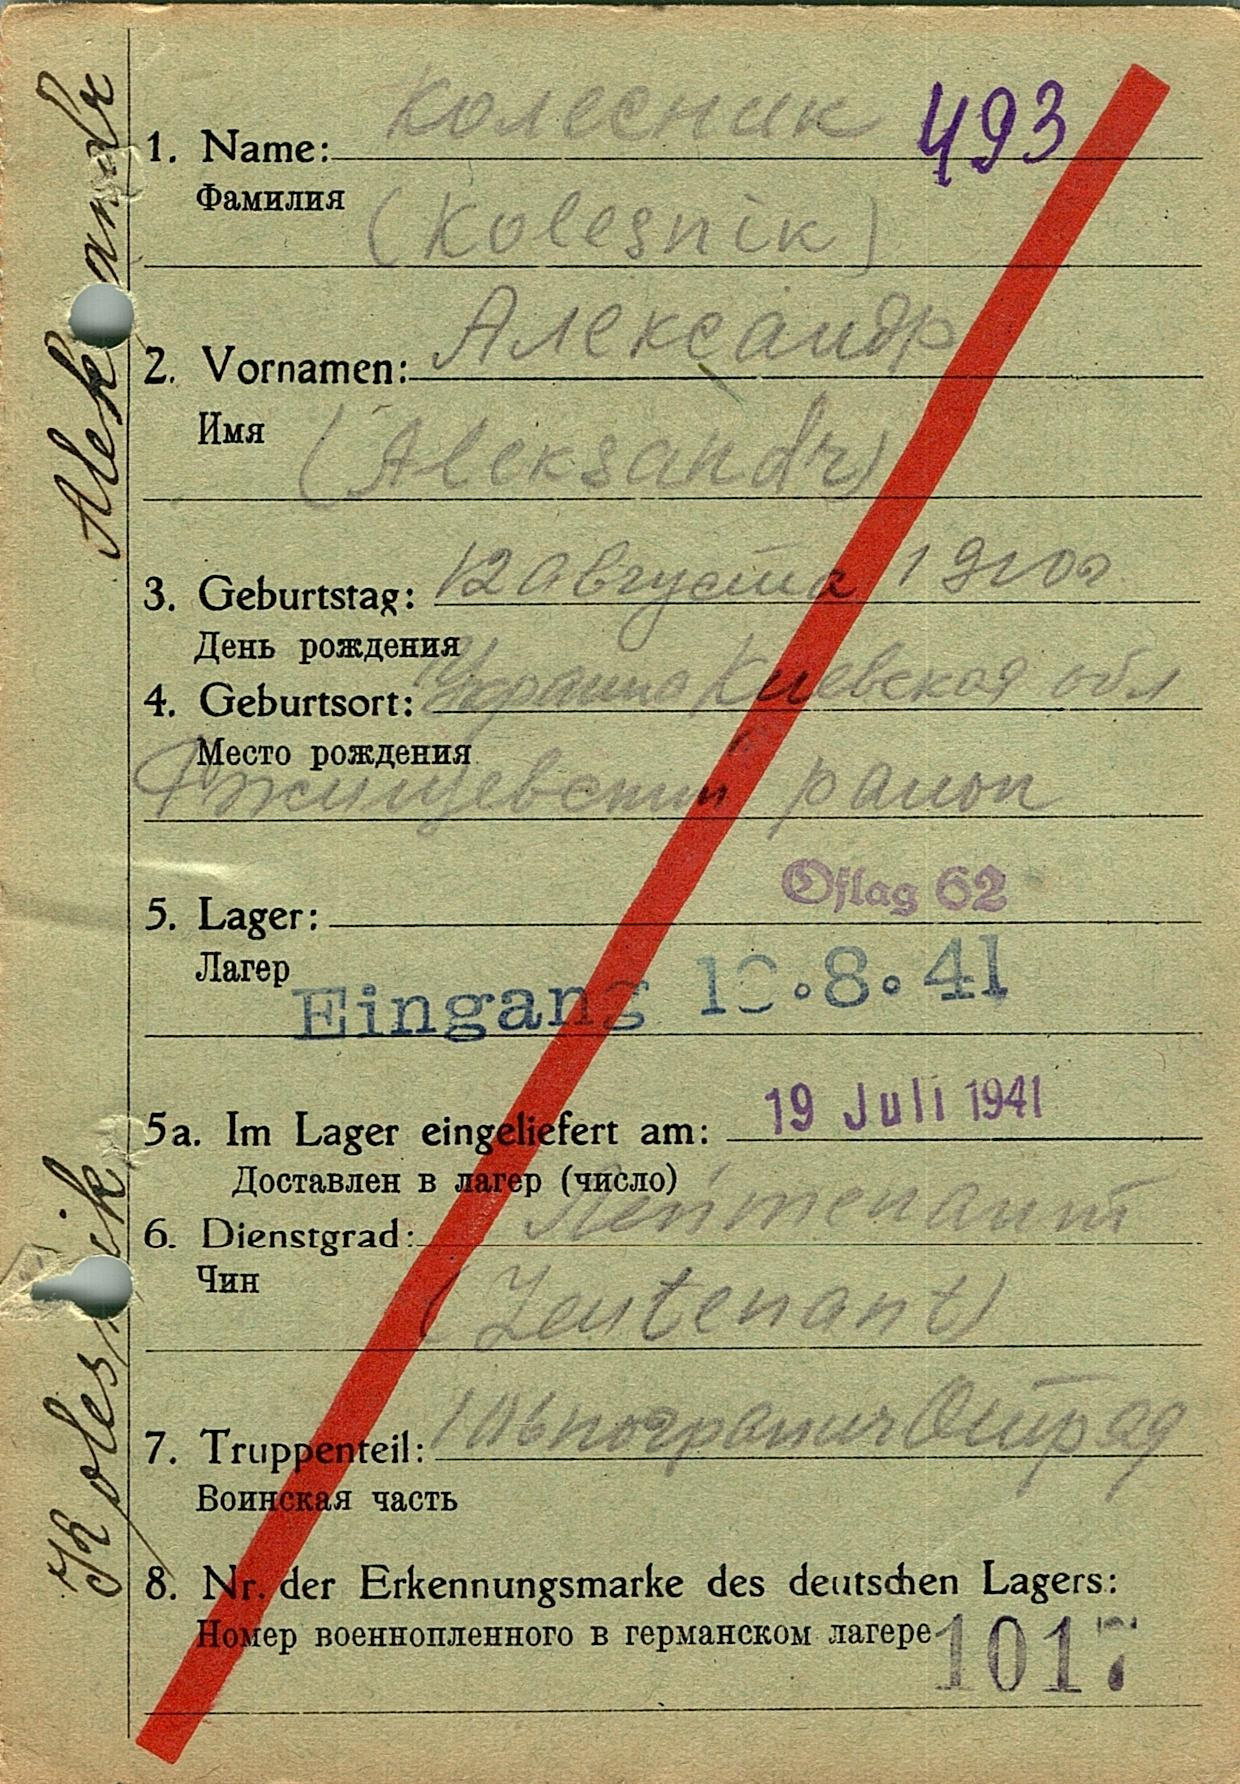 Колесник 493
1. Name:
Фамилия
(Kolesnik)
Александр
2. Vornamen:
Имя
(Aleksandr)
3. Geburtstag: 12 августа 1910 г
День рождения
4. Geburtsort: Украина Киевская обл
Место рождения
Ржищевский район
Oflag 62
5. Lager:
Лагер
Eingang .8.41
5a. Im Lager eingeliefert am: 19 Juli 1941
Доставлен в лагер (число)
6. Dienstgrad: Лейтенант
Чин
(Leutenant)
7. Truppenteil: погранич Отряд
Воинская часть
8. Nr. der Erkennungsmarke des deutschen Lagers:
Номер военнопленного в германском лагере 1017
Kolesnik Aleksandr